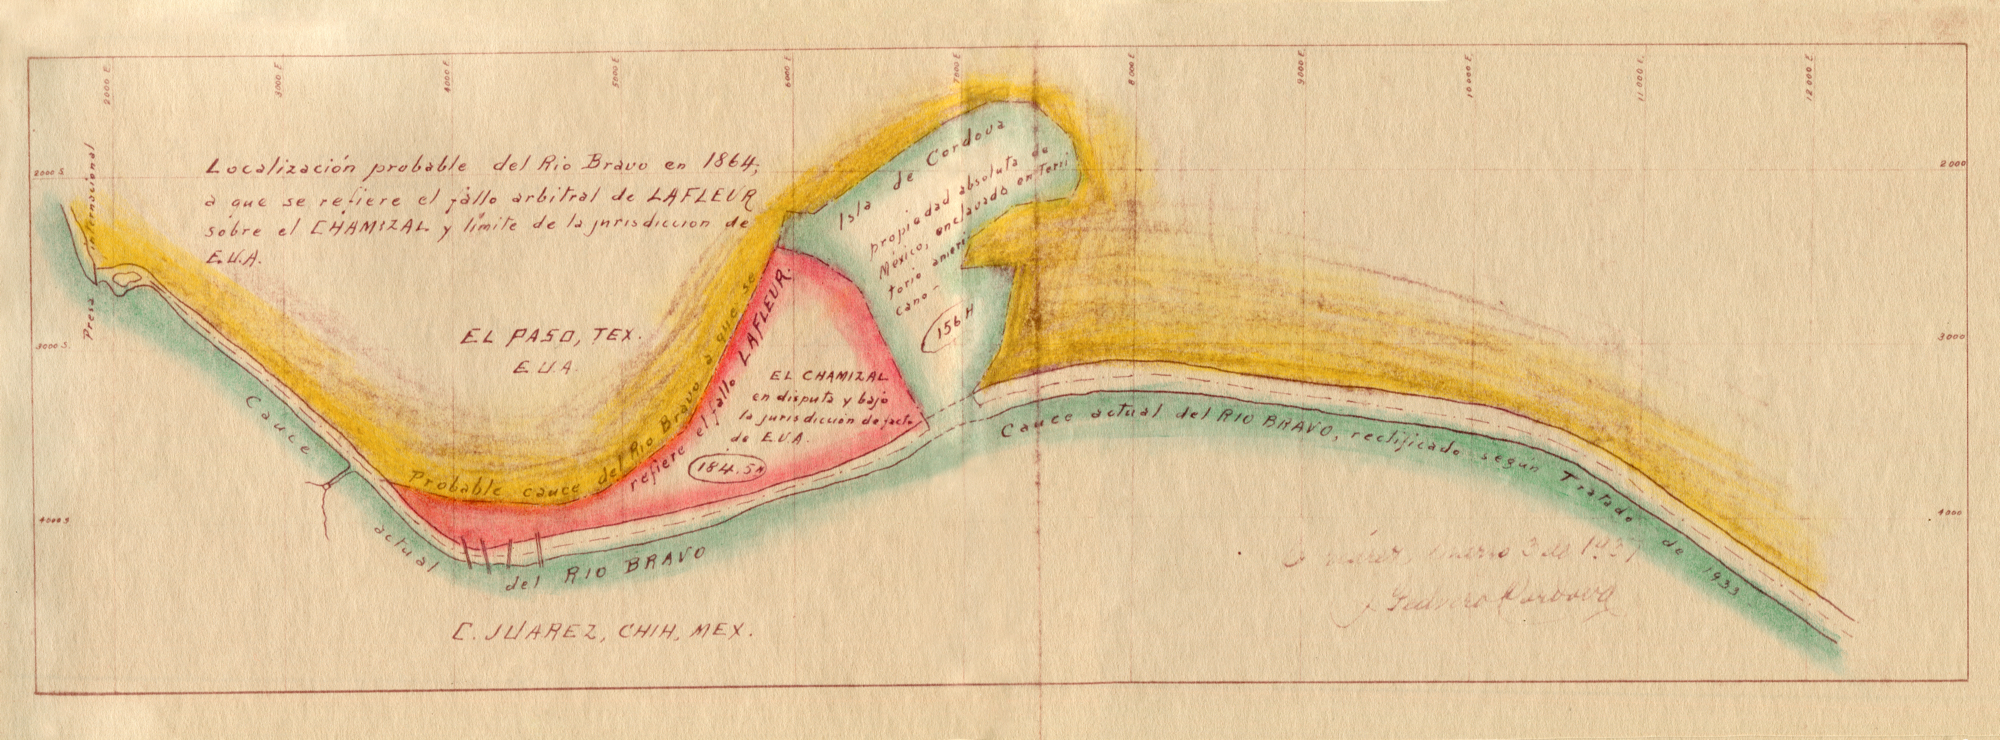 2000 E.
3000 E.
4000 E.
5000 E.
6000 E.
7000 E.
8000 E.
9000 E.
10.000 E.
11.000 E.
12.000 E.
2000 S.
3000 S.
4000 S
2000
3000
4000
Presa internacional
Localización probable del Rio Bravo en 1864,
a que se refiere el fallo arbitral de LAFLEUR
sobre el CHAMIZAL y límite de la jurisdiccion de
E.U.A.
EL PASO, TEX.
E.U.A.
Isla de Cordova
propiedad absoluta de
México, enclavado en terri
torio ameri
cano-
156 H
Probable cauce del Rio Bravo a que se
refiere el fallo LAFLEUR.
EL CHAMIZAL
en disputa y bajo
la jurisdiccion de facto
de E.U.A.
184.5 H
Cauce actual del RIO BRAVO
Cauce actual del RIO BRAVO, rectificado según Tratado de 1933
C. JUAREZ, CHIH, MEX.
enero 3 de
Cordova